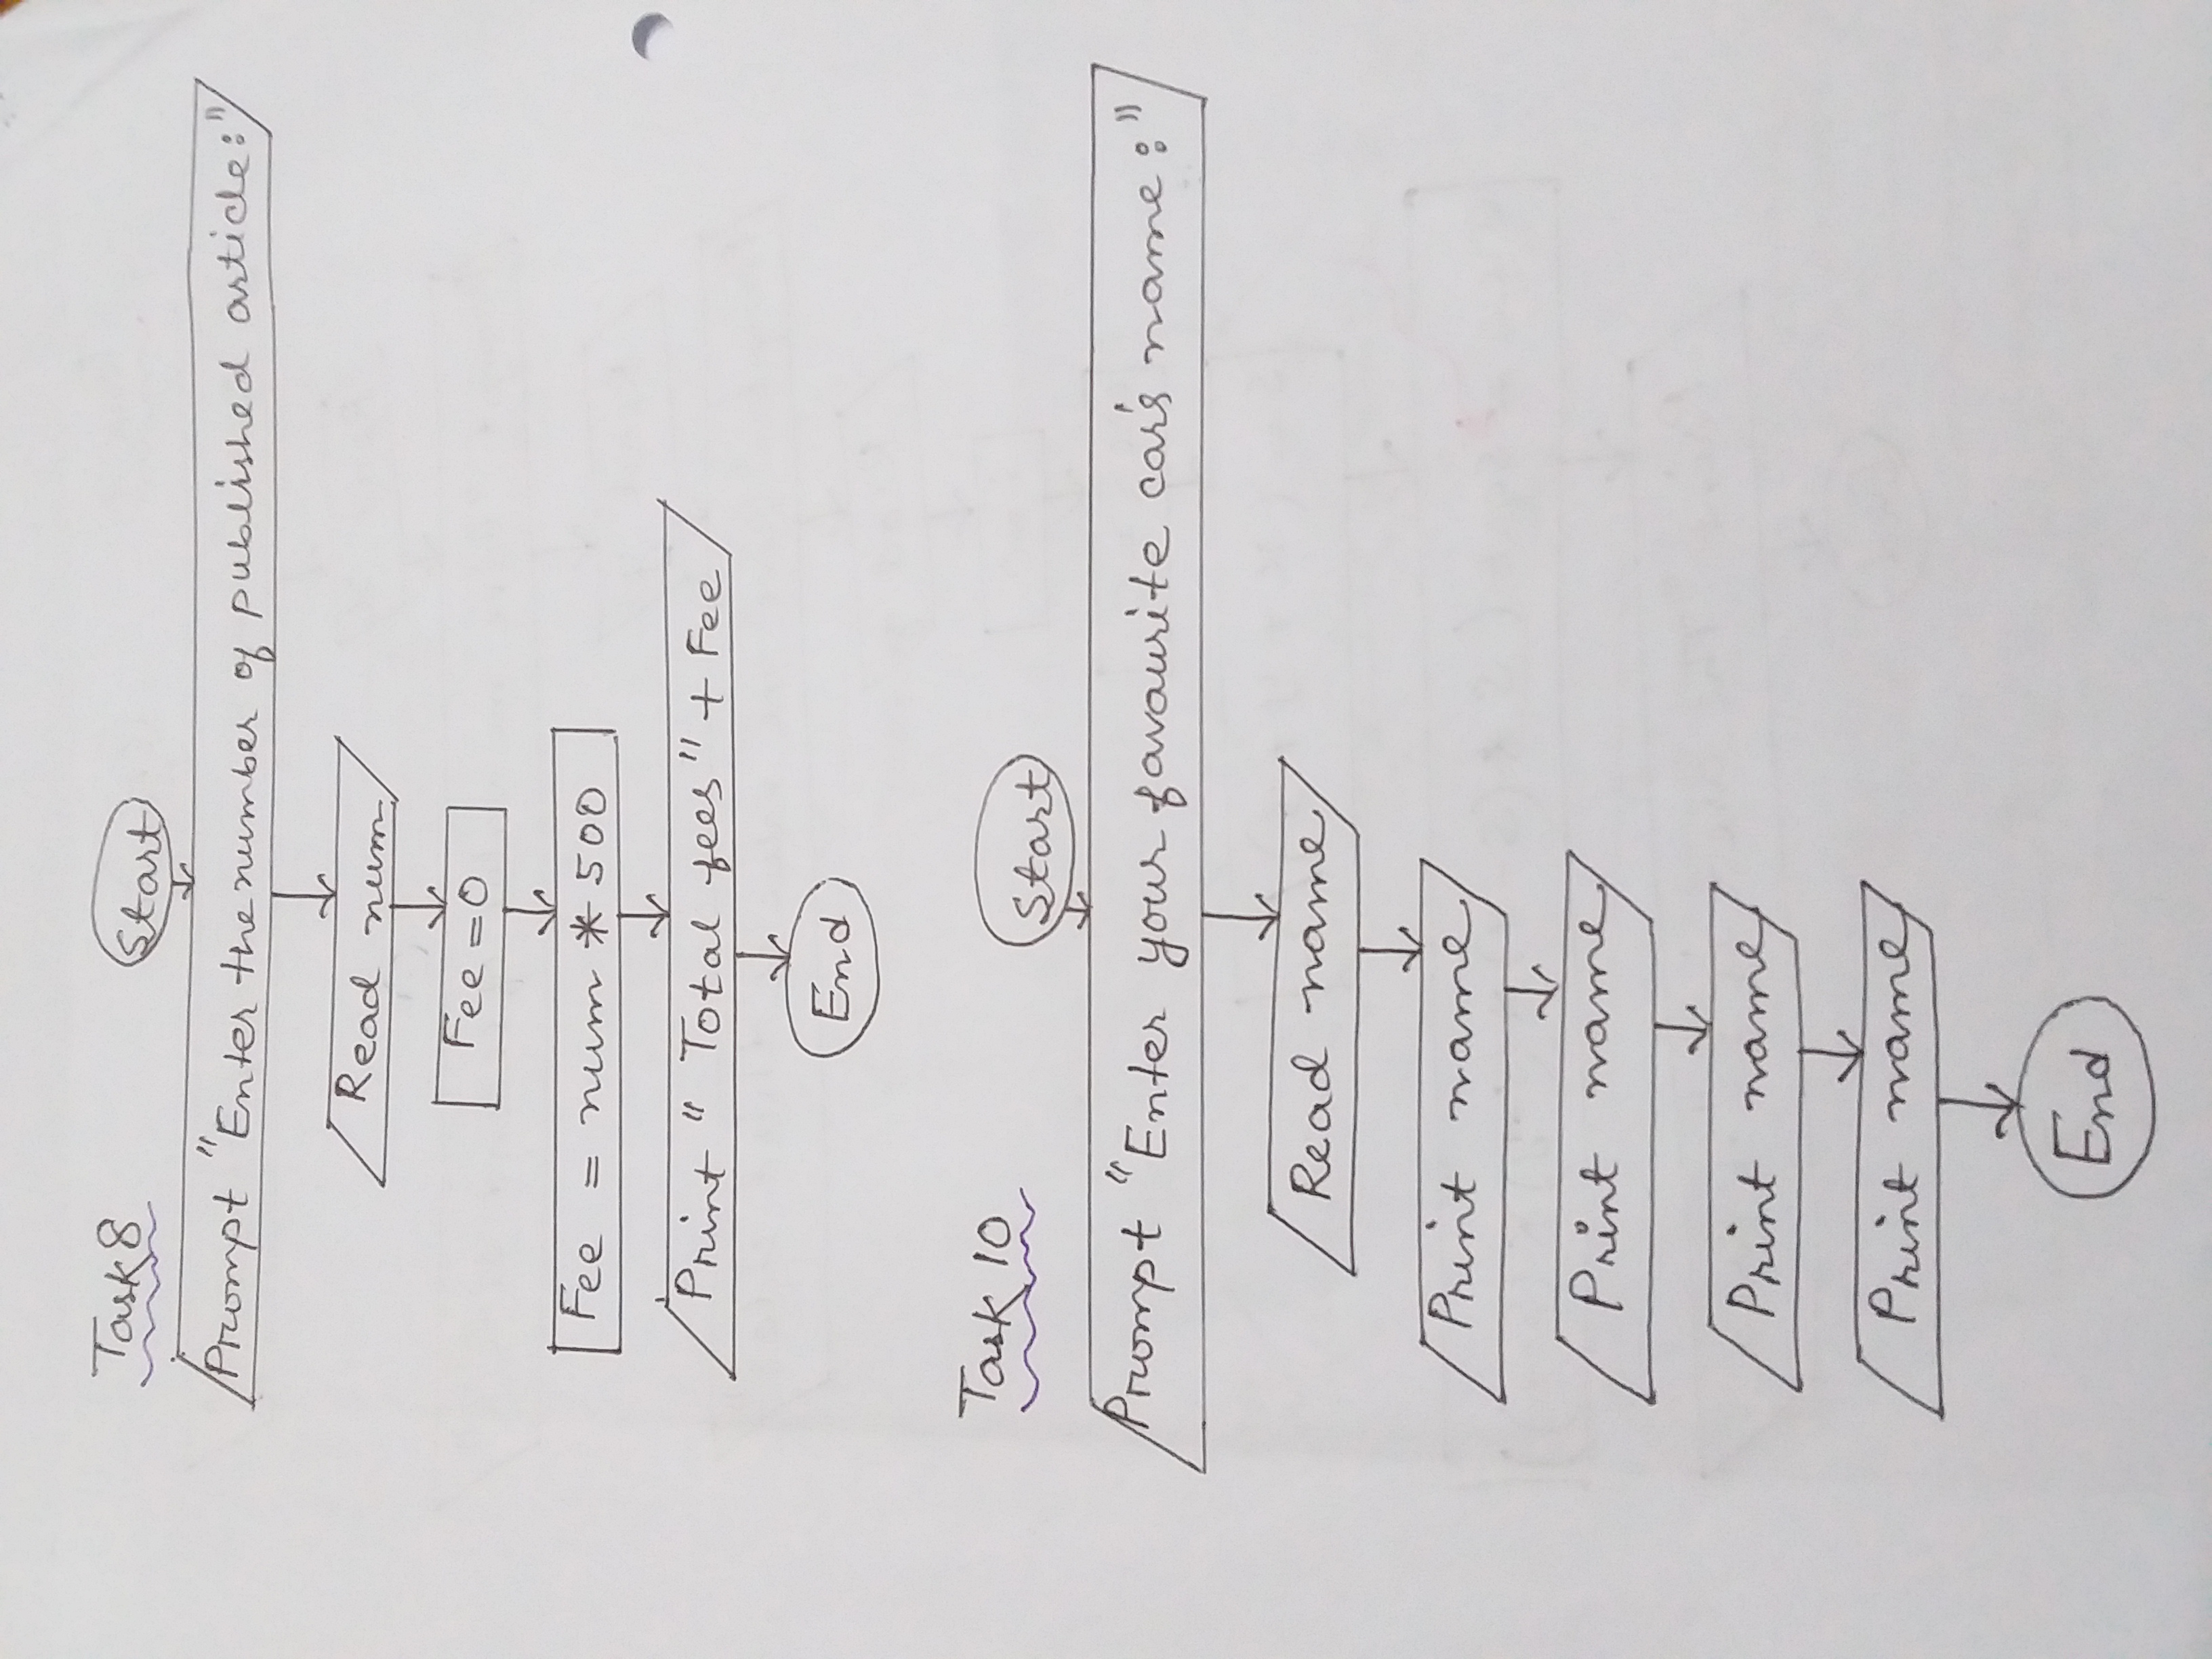 Task 8
Start
Prompt "Enter the number of published article:"
Read num
Fee = 0
Fee = num * 500
Print " Total fees" + Fee
End
Task 10
Start
Prompt "Enter your favourite car's name:"
Read name
Print name
Print name
Print name
Print name
End